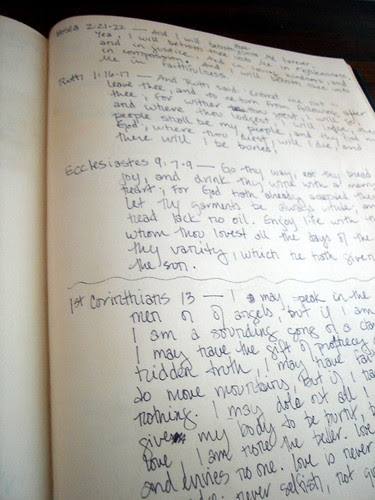 Hosea 2:21-22 — And I will betroth thee
Yea, I will betroth thee unto me forever,
and in justice, and in righteousness
in compassion. And I will betroth thee unto
me in faithfulness.
Ruth 1:16-17 — And Ruth said: Entreat me not to
leave thee, and to return from following after
thee; for wither thou goest, I will go;
and where thou lodgest, I will lodge; thy
people shall be my people, and thy God my
God; where thou diest, will I die, and
there will I be buried
Ecclesiastes 9:7-9 — Go thy way, eat thy bread
joy, and drink thy wine with a merry
heart; for God hath already accepted
Let thy garments be always white; and
head lack no oil. Enjoy life with
whom thou lovest all the days of the
thy vanity, which he hath given
the sun.
1st Corinthians 13 — I may speak in the
men or of angels, but if I am
I am a sounding gong or a
I may have the gift of prophecy
hidden truth; I may have
to move mountains, but if I
nothing. I may dole out all
give my body to be burnt,
love I am none the better. Love
and envies no one. Love is never
never selfish, not